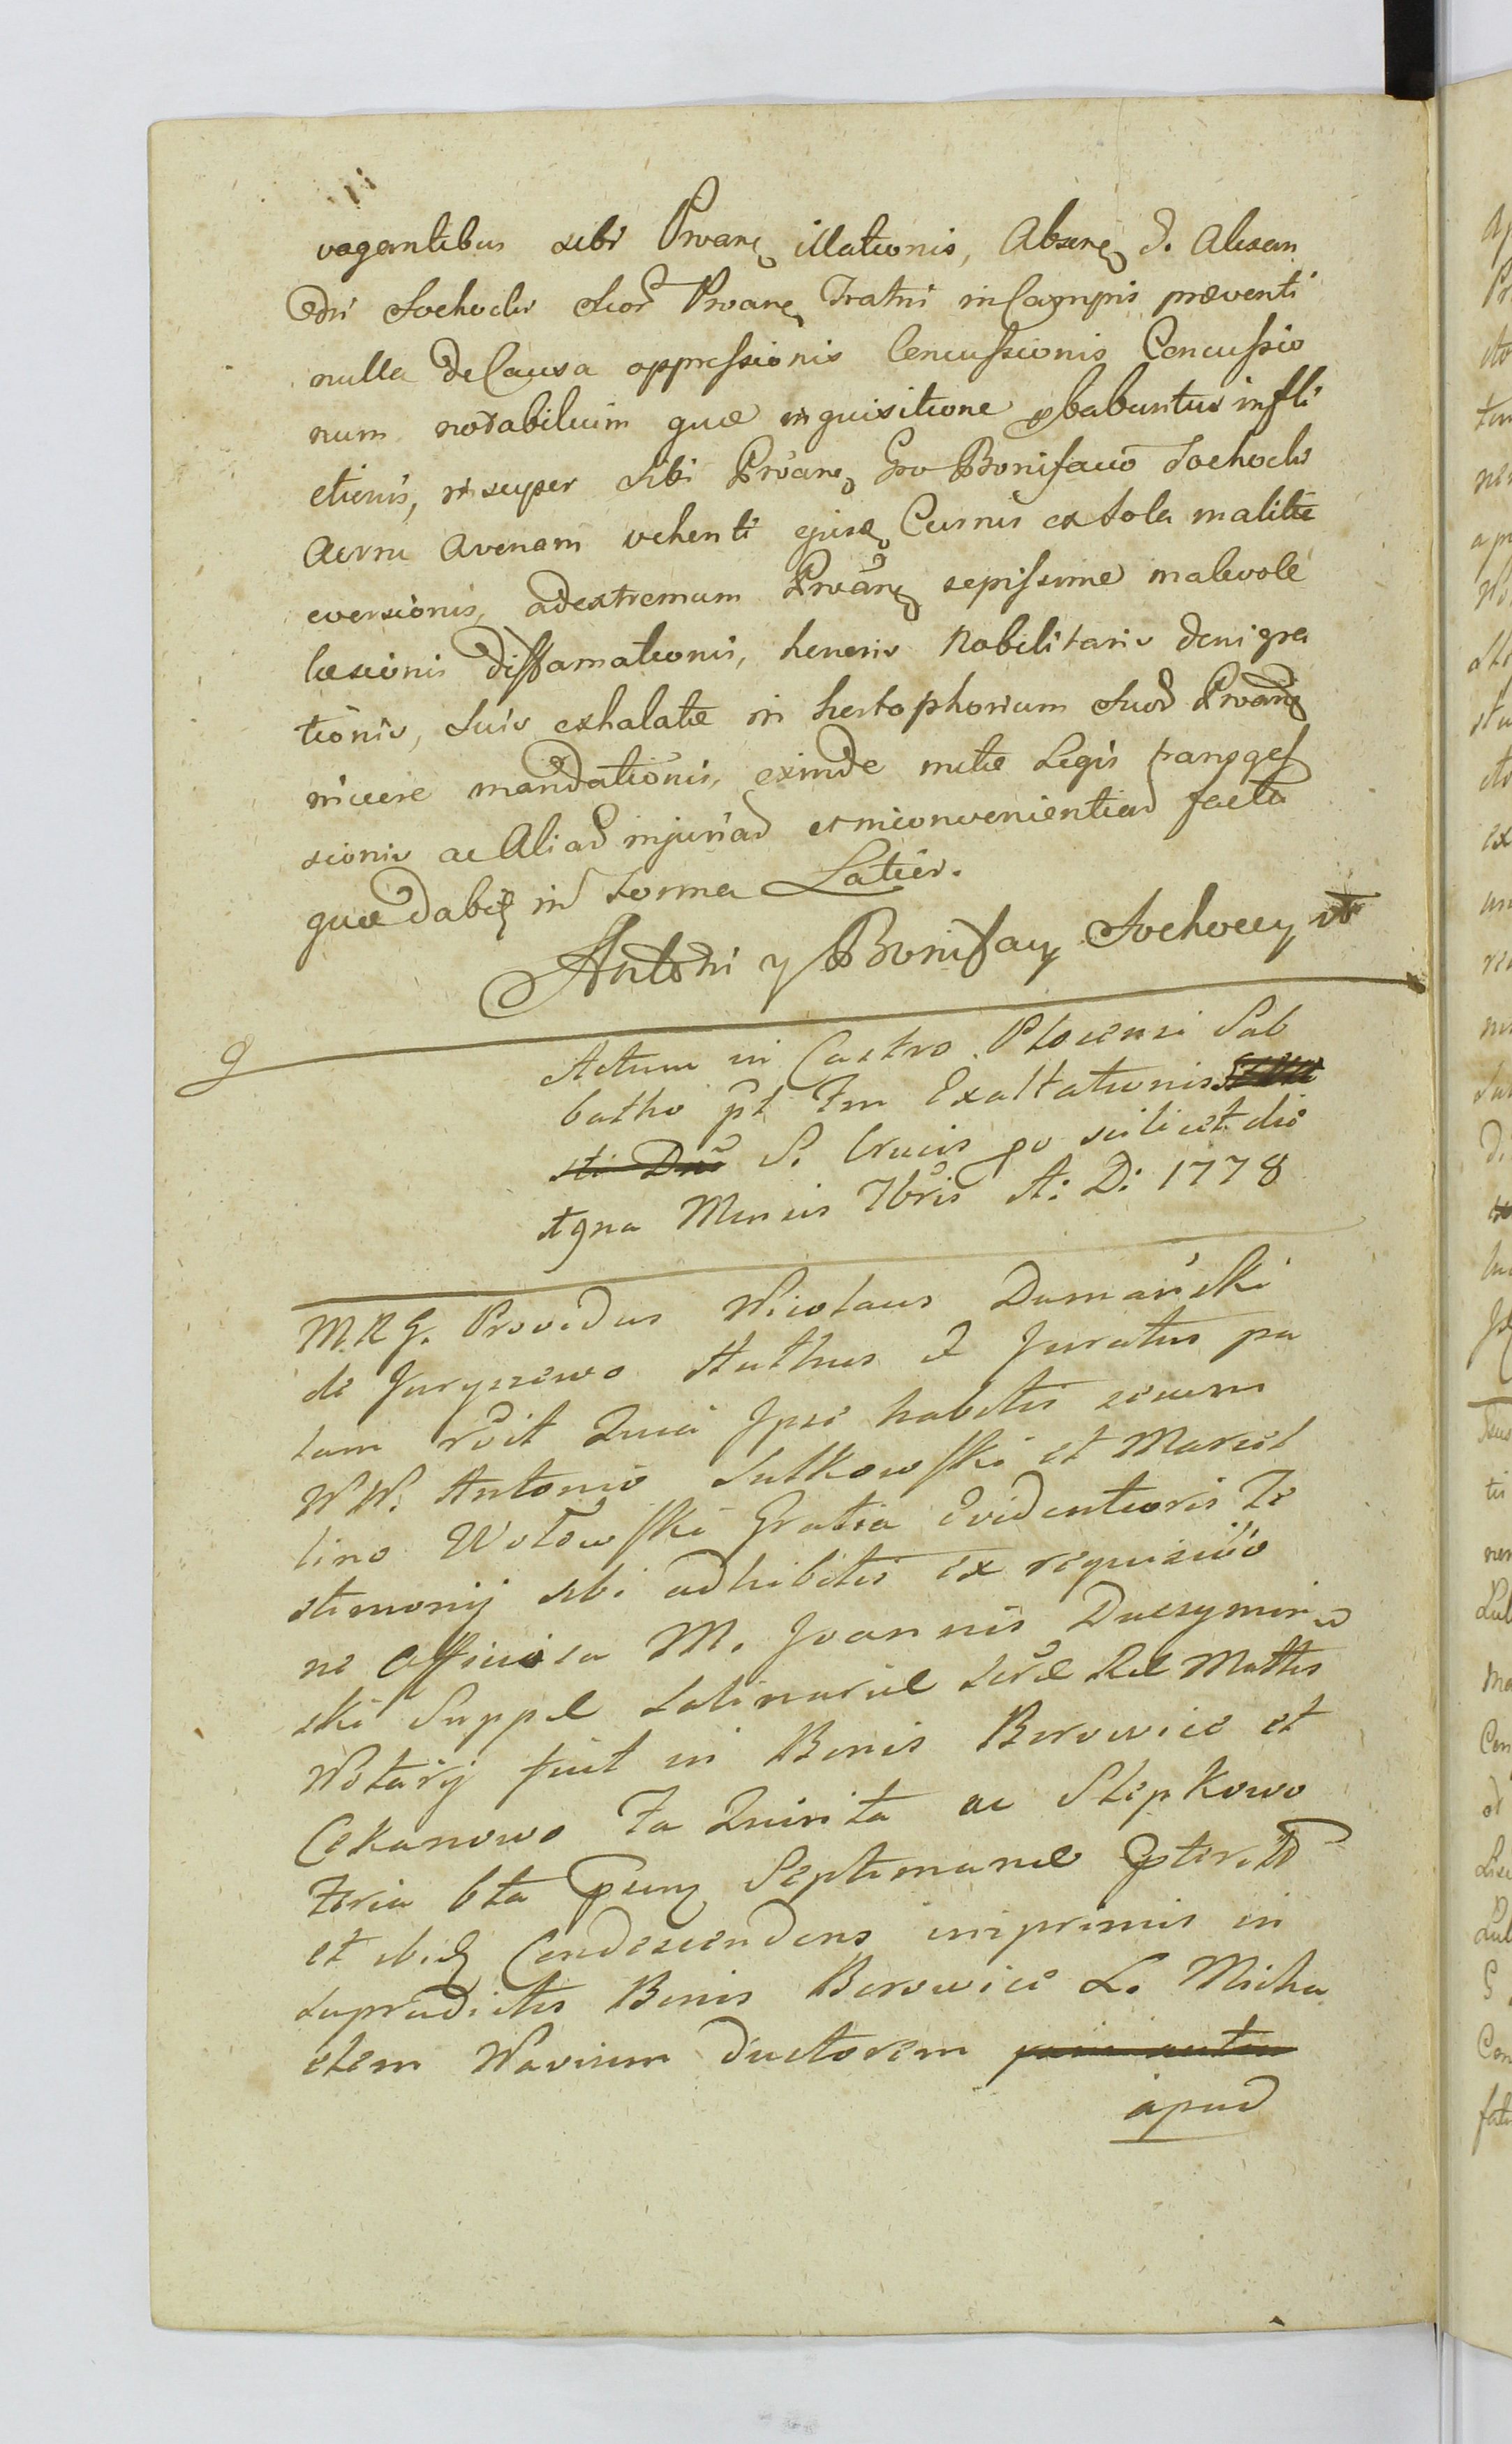 vagantibus sibi Proane illationis, Absene d. Alexan
dri Sochocki Suor Proane Fratri in Campis præventi
nulla de Causa oppressionis Concussionis Concussio
num notabilium quæ inquisitione pbabuntur infli
ctionis, insuper Sibi Proane Gro Bonifacio Sochocki
Acrru Avenam vehenti ejusq Currus ex sola malitia
eversionis, ad extremum Proane sepissime malevole
læsionis diffamationis, honoris Nobilitaris denigra
tionis, Suis exhalatæ in hortophorium Suos Proane
nicere mandationis, exinde mitæ Legis transgres
sionis ac Alias injurias et inconvenientias facta
quæ dabit in Forma Latior.
Antoni y Bonifacy Sochoccy
Actum in Castro Plocensi Sab
batho pt Fm Exaltationis
sti Dni S. Crucis po scilicet die
19na Mensis 7bris A: D: 1778
M. R G. Providus Nicolaus Dumański
de Juryszewo Authus & Juratus pa
lam rdit Quia Ipse habitis secum
NN. Antonio Sutkowski et Marcel
lino Wolowski Gratia Evidentioris Te
stimonij sibi adhibitis ex requisitio
ne Officiosa M. Joannis Duczymin
ski Suppæ Salinariæ Sæ Ræ Mattis
Notarij fuit in Bonis Borowice et
Cekanowo Fa Quinta ac Slepkowo
Feria 6ta psenq Septimanæ pterita
et ibiq Condescendens inprimis in
supradictis Bonis Borowice L. Micha
elem Navium ductorem
apud